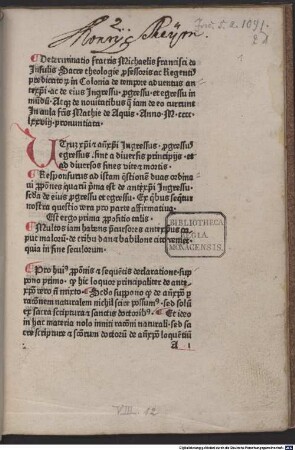 2
Determinatio fratris Michaelis francisci de
Insulis Sacre theologie professoris ac Regentis
predicatorum in Colonia de tempore aduentus an
ticristi ac de eius Ingressu progressu et egressu in
mundum Ac de nouitatibus que iam de eo currunt
In aula fratris Mathie de Aquis Anno M. cccc
lxxviij pronuntiata
Utrum Xpristi et anticristi Ingressus progressus
egressus sint a diuersis principijs et
ad diuersos fines vite et mortis
Responsurus ad istam questionem duas ordina
ui propositiones quarum prima est de anticristi Ingressu
secunda de eius progressu et egressu Ex quibus sequitur
nostra questio vera pro parte affirmatiua
Est ergo prima propositio talis
Multos iam habens precursores antixpus ca
put malorum de tribu dan et babilone citius veniet
quia in fine seculorum
BIBLIOTHECA
REGIA
MONACENSIS
Pro huius propositionis et sequentis declaratione sup
pono primo quod hic loquor principaliter de anti
cristo vero et mixto Secundo suppono quod de anticristo per
rationem naturalem nichil scire possumus sed solum
ex sacra scriptura et sanctis doctoribus Et ideo
in hac materia nolo inniti rationi naturali sed sa
cre scripture et sanctorum doctorum de anticristo loquentium
A i
VIII 12